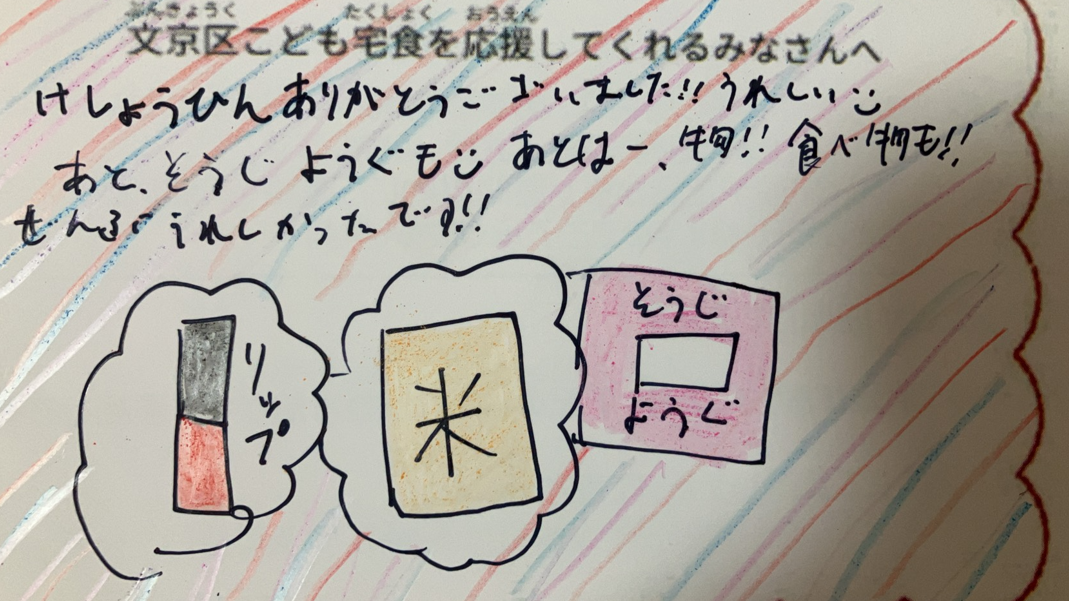 ぶんきょうく たくしょく おうえん
文京区こども宅食を応援してくれるみなさんへ
けしょうひんありがとうございました!! うれしい
あと、そうじようぐも あとはー、物!! 食べ物も!!
ぜんぶうれしかったです!!
リップ
米
そうじ
ようぐ